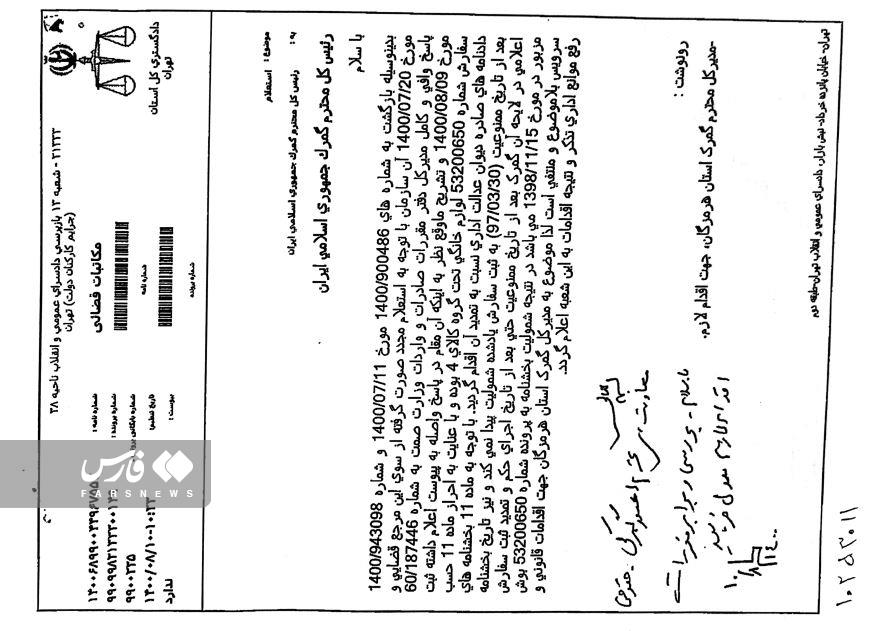 دادگستری کل استان
تهران
۲۱۲۲۲ - شعبه ۱۳ بازپرسی دادسرای عمومی و انقلاب ناحیه ۲۸
(جرایم کارکنان دولت) تهران
مکاتبات قضائی
شماره نامه :
شماره پرونده :
شماره نامه :
شماره پرونده :
شماره بایگانی
تاریخ تنظیم:
پیوست :
۹۹۰۰۲۳۵
۱۴۰۰/۰۸/۱۰
ندارد
فارس
FARSNEWS
موضوع : استعلام
به : رئیس کل محترم گمرک جمهوری اسلامی ایران
رئیس کل محترم گمرک جمهوری اسلامی ایران
با سلام
بدینوسیله بازگشت به شماره های 1400/900486 مورخ 1400/07/11 و شماره 1400/943098
مورخ 1400/07/20 آن سازمان با توجه به استعلام مجدد صورت گرفته از سوی این مرجع قضایی و
پاسخ وافی و کامل مدیرکل دفتر مقررات صادرات و واردات وزارت صمت به شماره 60/187446
مورخ 1400/08/09 و تشریح ماوقع نظر به اینکه آن مقام در پاسخ واصله به پیوست اعلام داشته ثبت
سفارش شماره 53200650 لوازم خانگی تحت گروه کالای 4 بوده و با عنایت به احراز ماده 11 حسب
دادنامه های صادره دیوان عدالت اداری نسبت به تمدید آن اقدام گردید. با توجه به ماده 11 بخشنامه های
بعد از تاریخ ممنوعیت (97/03/30) به ثبت سفارش یادشده شمولیت پیدا نمی کند و نیز تاریخ بخشنامه
اعلامی در لایحه آن گمرک بعد از تاریخ ممنوعیت حتی بعد از تاریخ اجرای حکم و تمدید ثبت سفارش
مزبور در مورخ 1398/11/15 می باشد در نتیجه شمولیت بخشنامه به پرونده شماره 53200650 بوش
سرویس بلاموضوع و منتفی است لذا موضوع به مدیرکل گمرک استان هرمزگان جهت اقدامات قانونی و
رفع موانع اداری تذکر و نتیجه اقدامات به این شعبه اعلام گردد.
رونوشت :
-مدیرکل محترم گمرک استان هرمزگان، جهت اقدام لازم.
تهران، خیابان پانزده خرداد، نبش بازار، دادسرای عمومی و انقلاب تهران طبقه دوم
۱۰۲۵۳۰۱۱